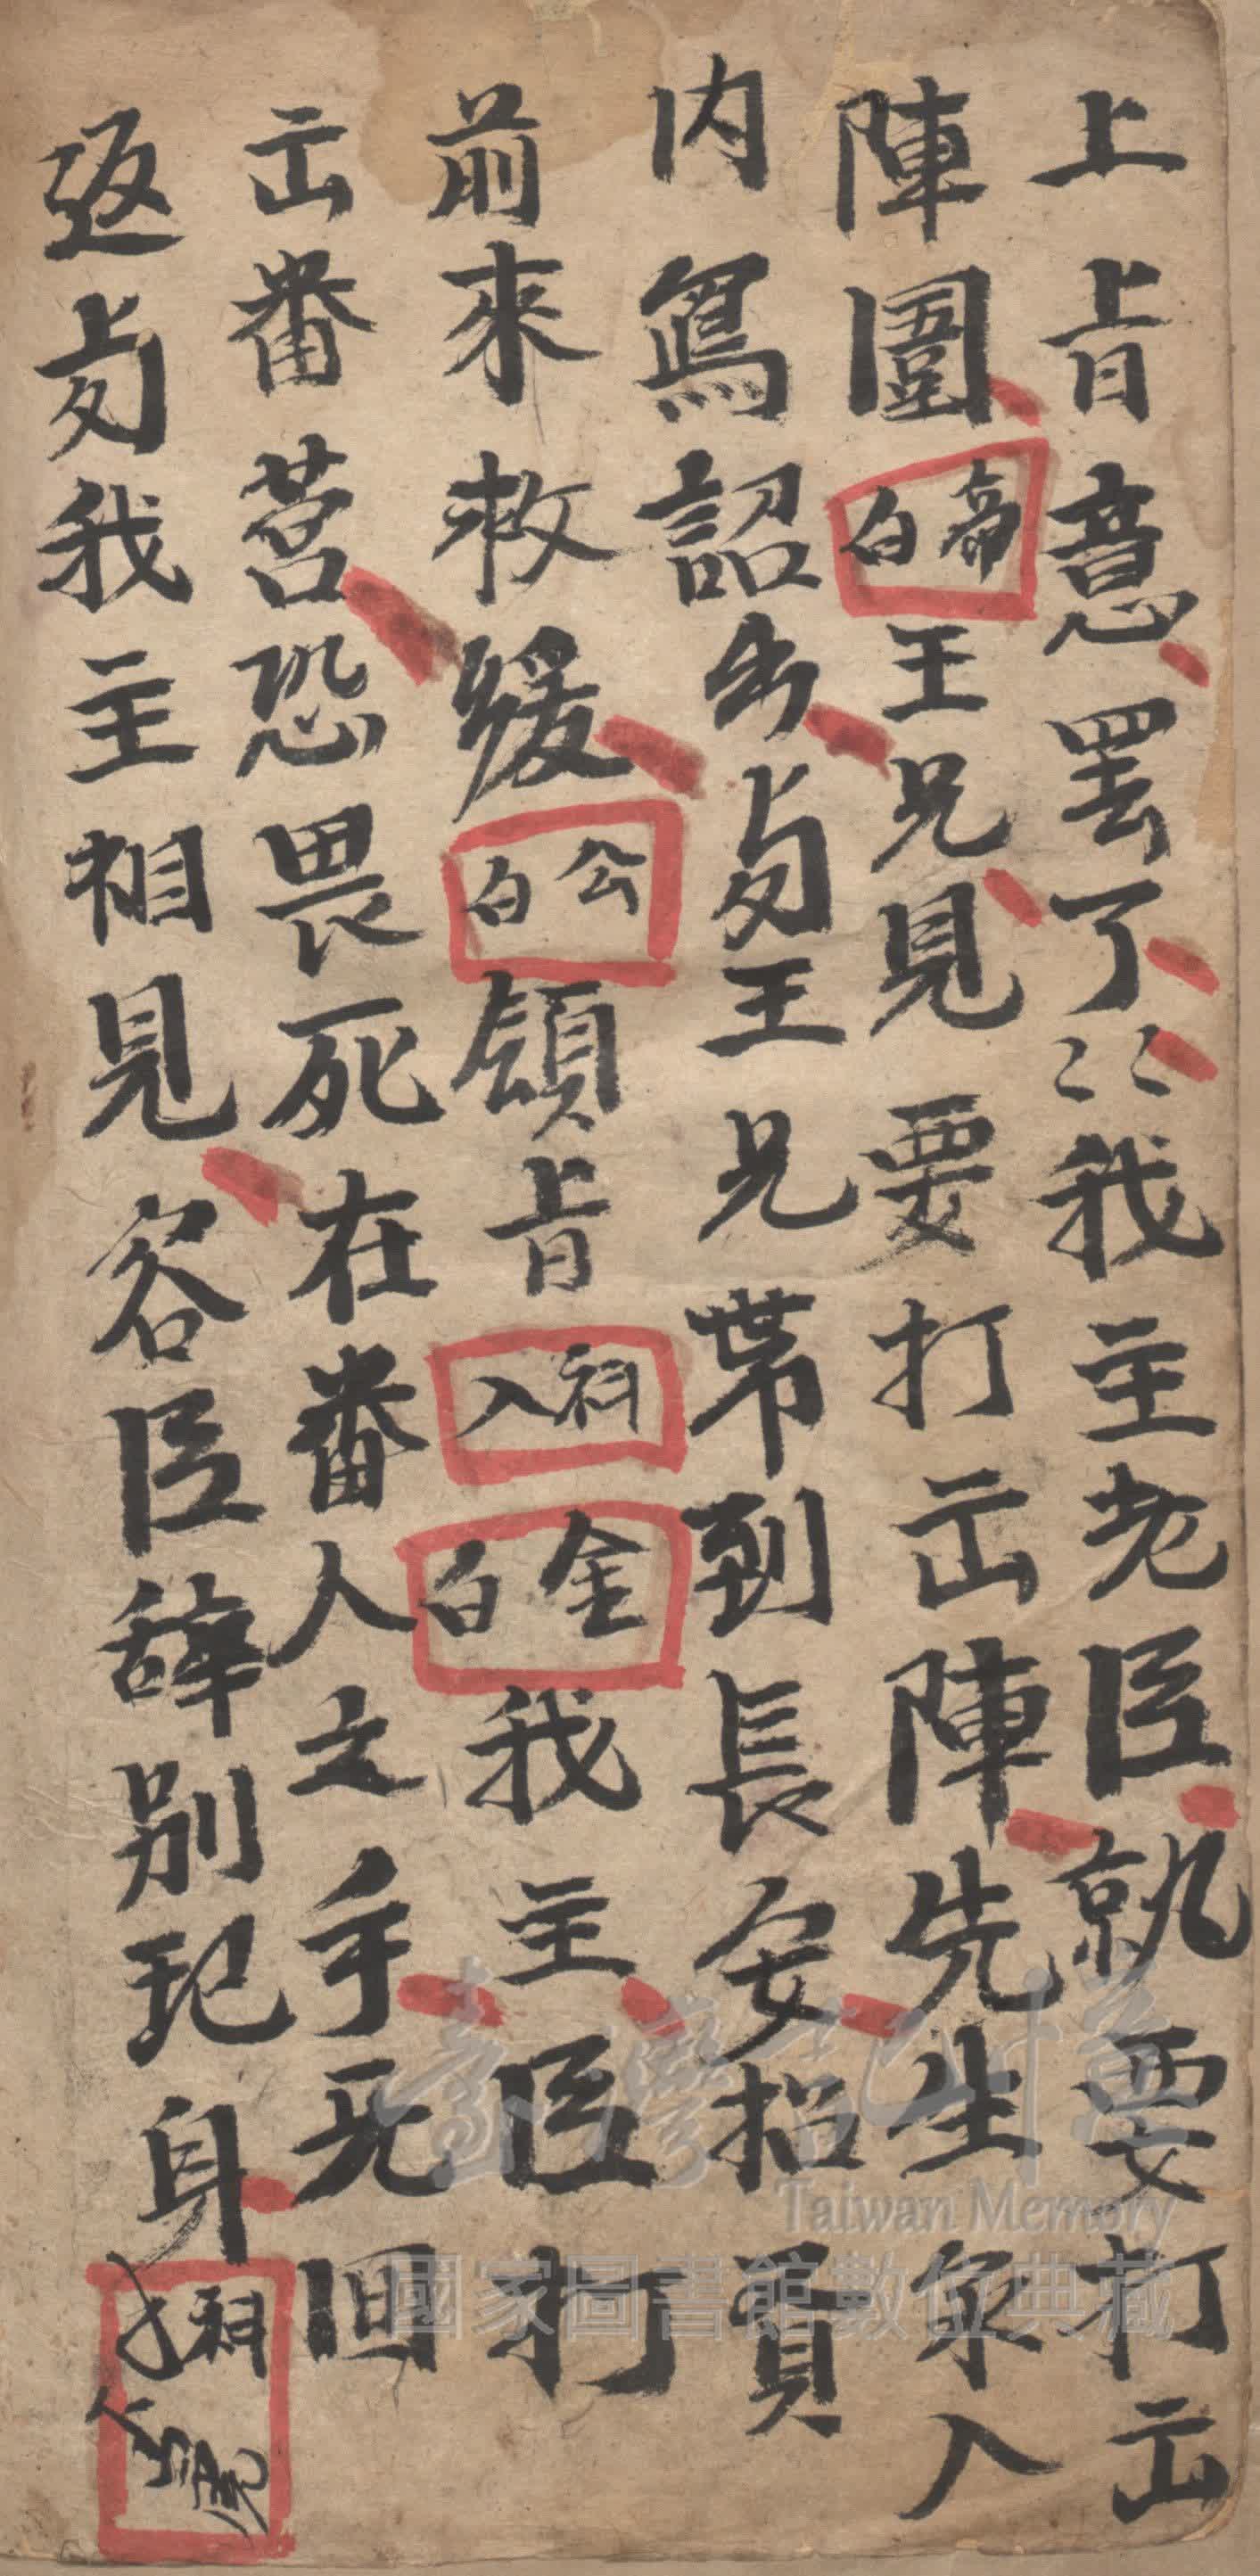 上旨意罷了〻〻我主老臣就要打出
陣圍帝白王兄見要打出陣先生入
内寫詔王兄帶到長安招賢
前來救緩公白領旨科入金白我主臣打
出番莒恐畏死在番人之手无回
返我主相見容臣辞别起身科
臺灣記憶
Taiwan Memory
國家圖書館數位典藏